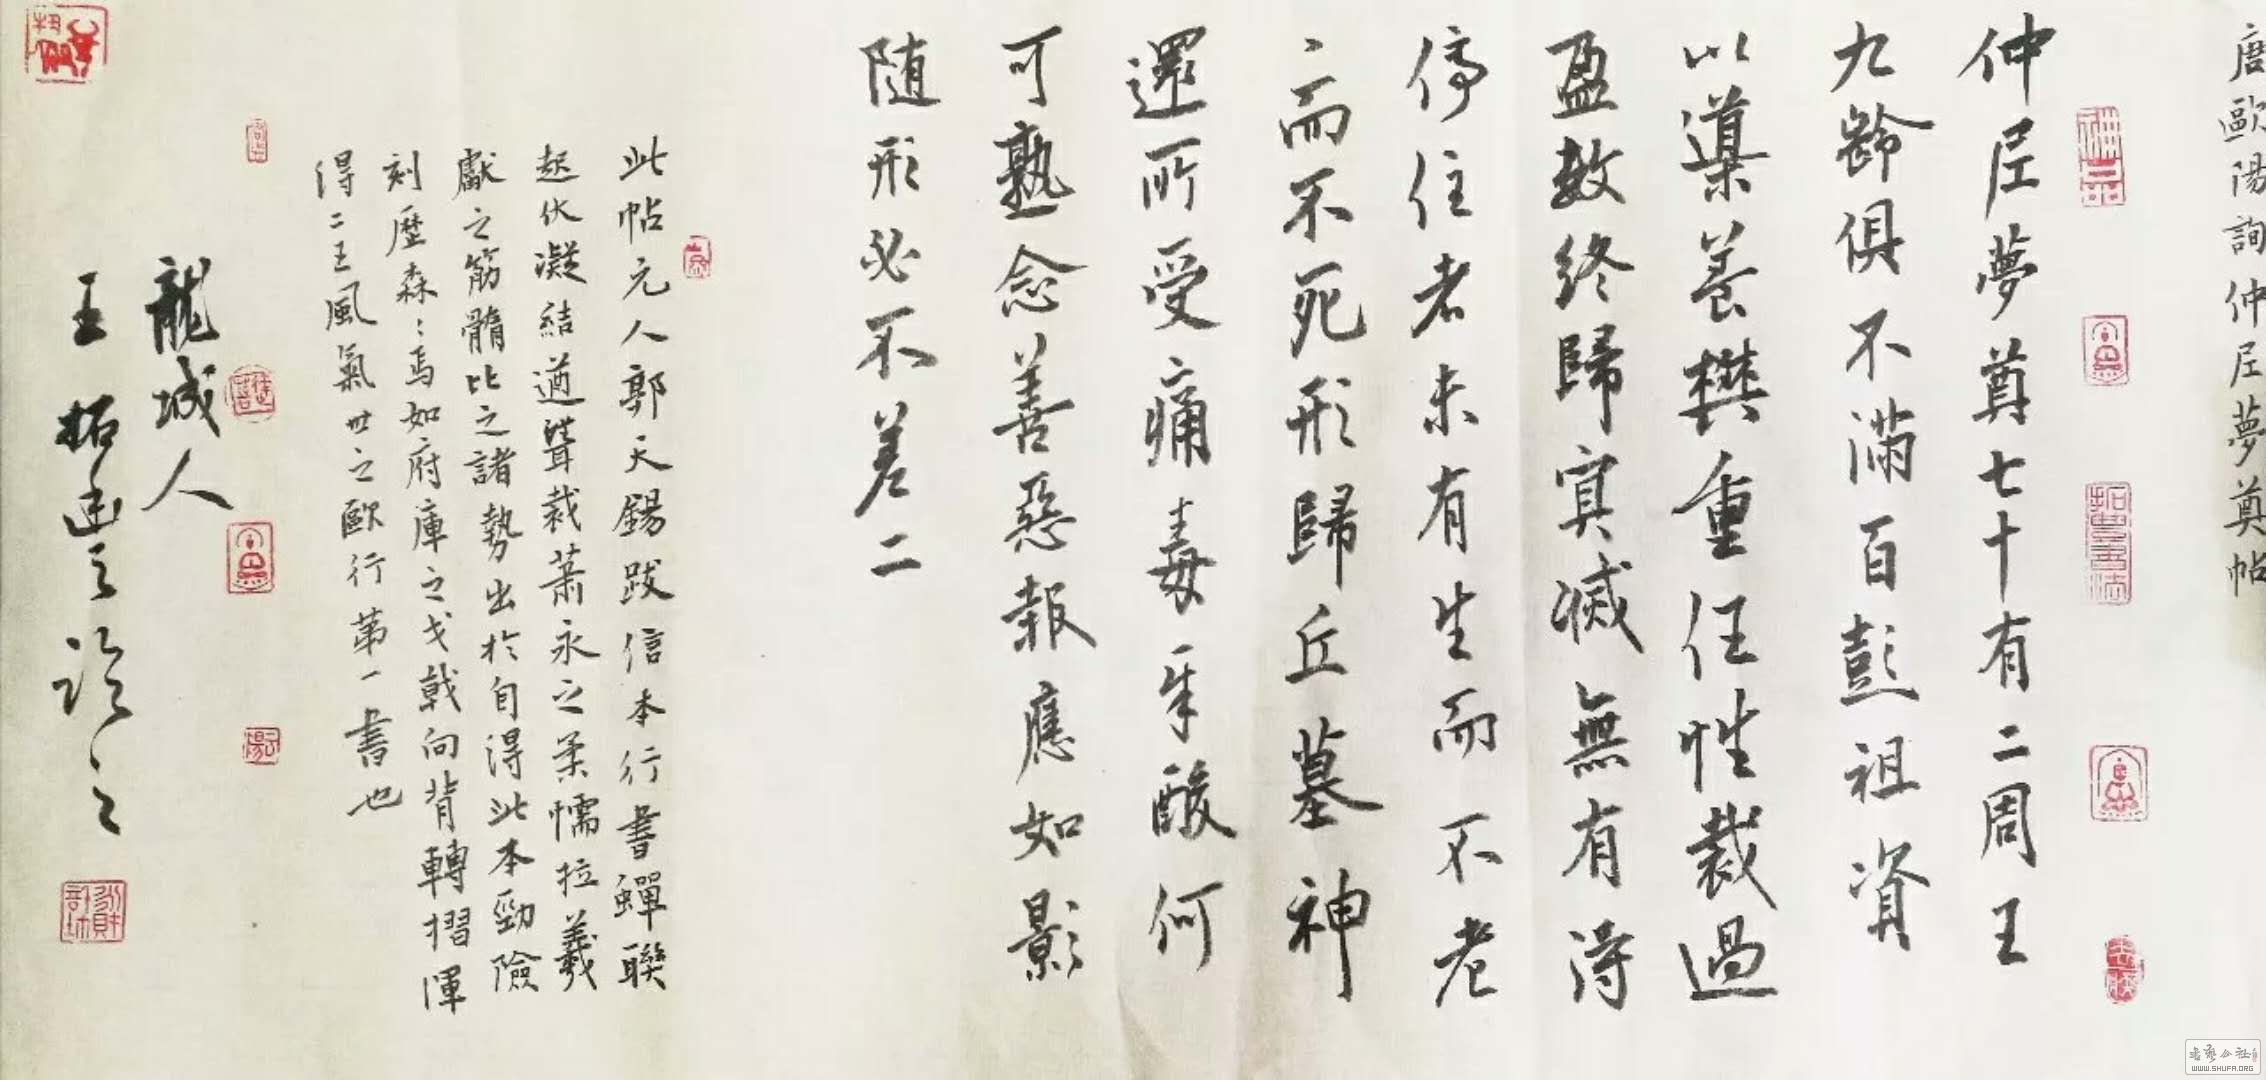 唐歐陽詢仲尼夢奠帖
仲尼夢奠七十有二周王
九齡俱不滿百彭祖資
以導養樊重任性裁過
盈數終歸冥滅無有得
停住者未有生而不老
〻而不死形歸丘墓神
還所受痛毒辛酸何
可熟念善惡報應如影
随形必不差二
此帖元人郭天錫跋信本行書蟬聯
起伏凝結遒聳裁蕭永之柔懦拉羲
獻之筋髓比之諸勢出於自得此本勁險
刻歷森〻焉如府庫之戈戟向背轉摺渾
得二王風氣世之歐行第一書也
龍城人
王拓臨之
拓豐書法
書藝公社
WWW.SHUFA.ORG